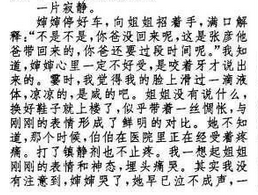 一片寂静。
婶婶停好车，向姐姐招着手，满口解
释："不是不是，你爸没回来呢，这是张彦他
爸带回来的，你爸还要过段时间呢。"我知
道，婶婶心里一定不好受，是咬着牙才说出
来的。霎时，我觉得我的脸上滑过一滴液
体，凉凉的，是咸的吧。姐姐没有说什么，
换好鞋子就上楼了，似乎带着一丝惆怅，与
刚刚的表情形成了鲜明的对比。她不知
道，那个时候，伯伯在医院里正在经受着疼
痛。打了镇静剂也不止疼。我一想起姐姐
刚刚的表情和神态，埋头痛哭。其实我没
有注意到，婶婶哭了，她早已泣不成声，一